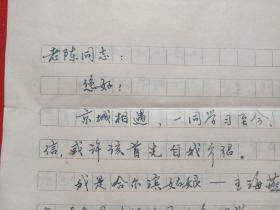 老陈同志：
您好！
京城相遇，一同学习至今，
信，或许该首先自我介绍。
我是哈尔滨姑娘——王海燕